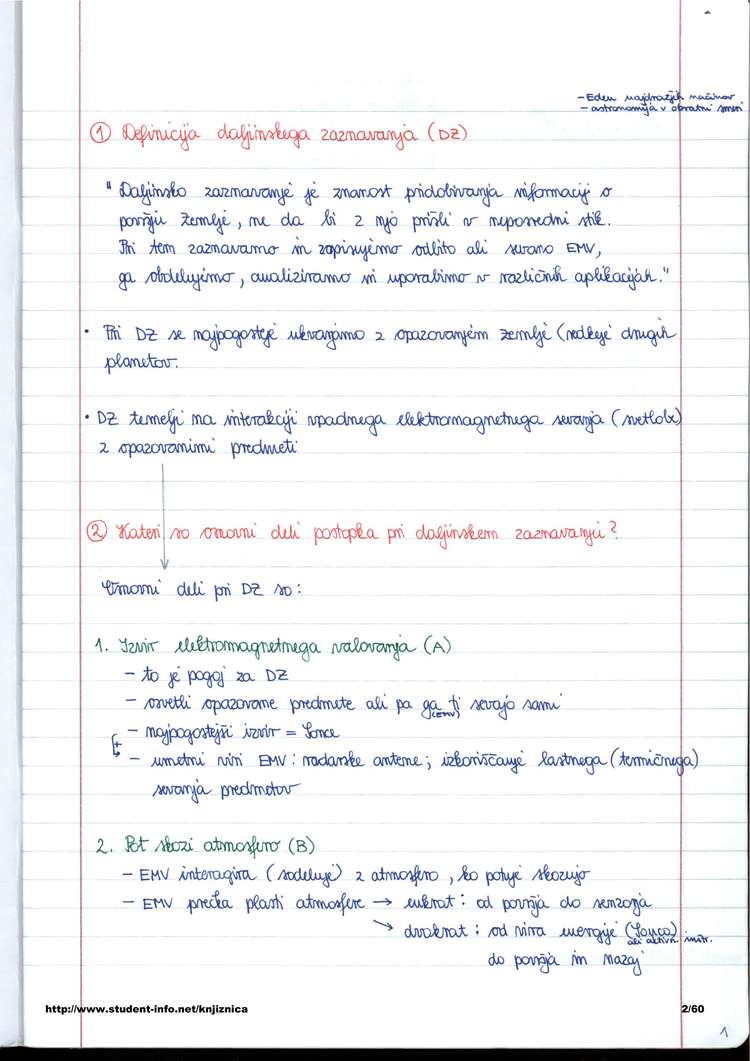 - Eden najdražjih načinov
- astronomija v obratni smeri
① Definicija daljinskega zaznavanja (DZ)
" Daljinsko zaznavanje je znanost pridobivanja informacij o
površju Zemlje, ne da bi z njo prišli v neposredni stik.
Pri tem zaznavamo in zapisujemo odbito ali sevano EMV,
ga obdelujemo, analiziramo in uporabimo v različnih aplikacijah."
• Pri DZ se najpogosteje ukvarjamo z opazovanjem zemlje (redkeje drugih
planetov.
• DZ temelji na interakciji vpadnega elektromagnetnega sevanja (svetlobe)
z opazovanimi predmeti
② Kateri so osnovni deli postopka pri daljinskem zaznavanju?
Osnovni deli pri DZ so:
1. Izvir elektromagnetnega valovanja (A)
- to je pogoj za DZ
- osvetli opazovane predmete ali pa ga (EMV) ti sevajo sami
- najpogostejši izvir = Sonce
- umetni viri EMV: radarske antene; izkoriščanje lastnega (termičnega)
sevanja predmetov
2. Pot skozi atmosfero (B)
- EMV interagira (sodeluje) z atmosfero, ko potuje skozujo
- EMV prečka plasti atmosfere → enkrat: od površja do senzorja
→ dvakrat: od vira energije (Sonca) ali aktivn. inštr.
do površja in nazaj
http://www.student-info.net/knjiznica
2/60
1